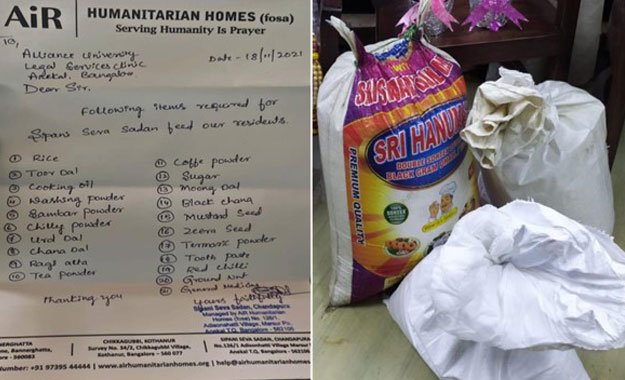 AiR HUMANITARIAN HOMES (fosa)
Serving Humanity Is Prayer
To,
Alliance University
Legal Services clinic
Anekal, Bangalore
Date - 18/11/2021
Dear Sir,
Following items required for
Sipani Seva Sadan feed our residents.
1 Rice
2 Toor Dal
3 Cooking oil
4 Washing powder
5 Sambar powder
6 Chilly powder
7 Urd Dal
8 Chana Dal
9 Ragi atta
10 Tea powder
11 Coffe powder
12 Sugar
13 Moong Dal
14 Black chana
15 Mustard Seed
16 Zeera Seed
17 Termarx powder
18 Tooth paste
19 Red chilli
20 Ground Nut
21 General Medicine
Thanking you
Yours faithfully
Sipani Seva Sadan, Chandapura
Managed by AiR Humanitarian
Homes (fosa) No. 126/1
Adisonahatti Village, Marsur Po.
Anekal T.Q. Bangalore - 562106
NERGHATTA
ne, Bannerghatta,
- 560083
CHIKKAGUBBI, KOTHANUR
Survey No. 34/2, Chikkagubbi Village,
Kothanur, Bangalore - 560 077
SIPANI SEVA SADAN, CHANDAPURA
No.126/1 Adisonhatti Village Marsur
Anekal T.Q. Bangalore - 562106
Number: +91 97395 44444 | www.airhumanitarianhomes.org | help@airhumanitarianhomes
SRI HANUM
DOUBLE SORTEX
BLACK GRAM
PREMIUM QUALITY
100%
SORTEX